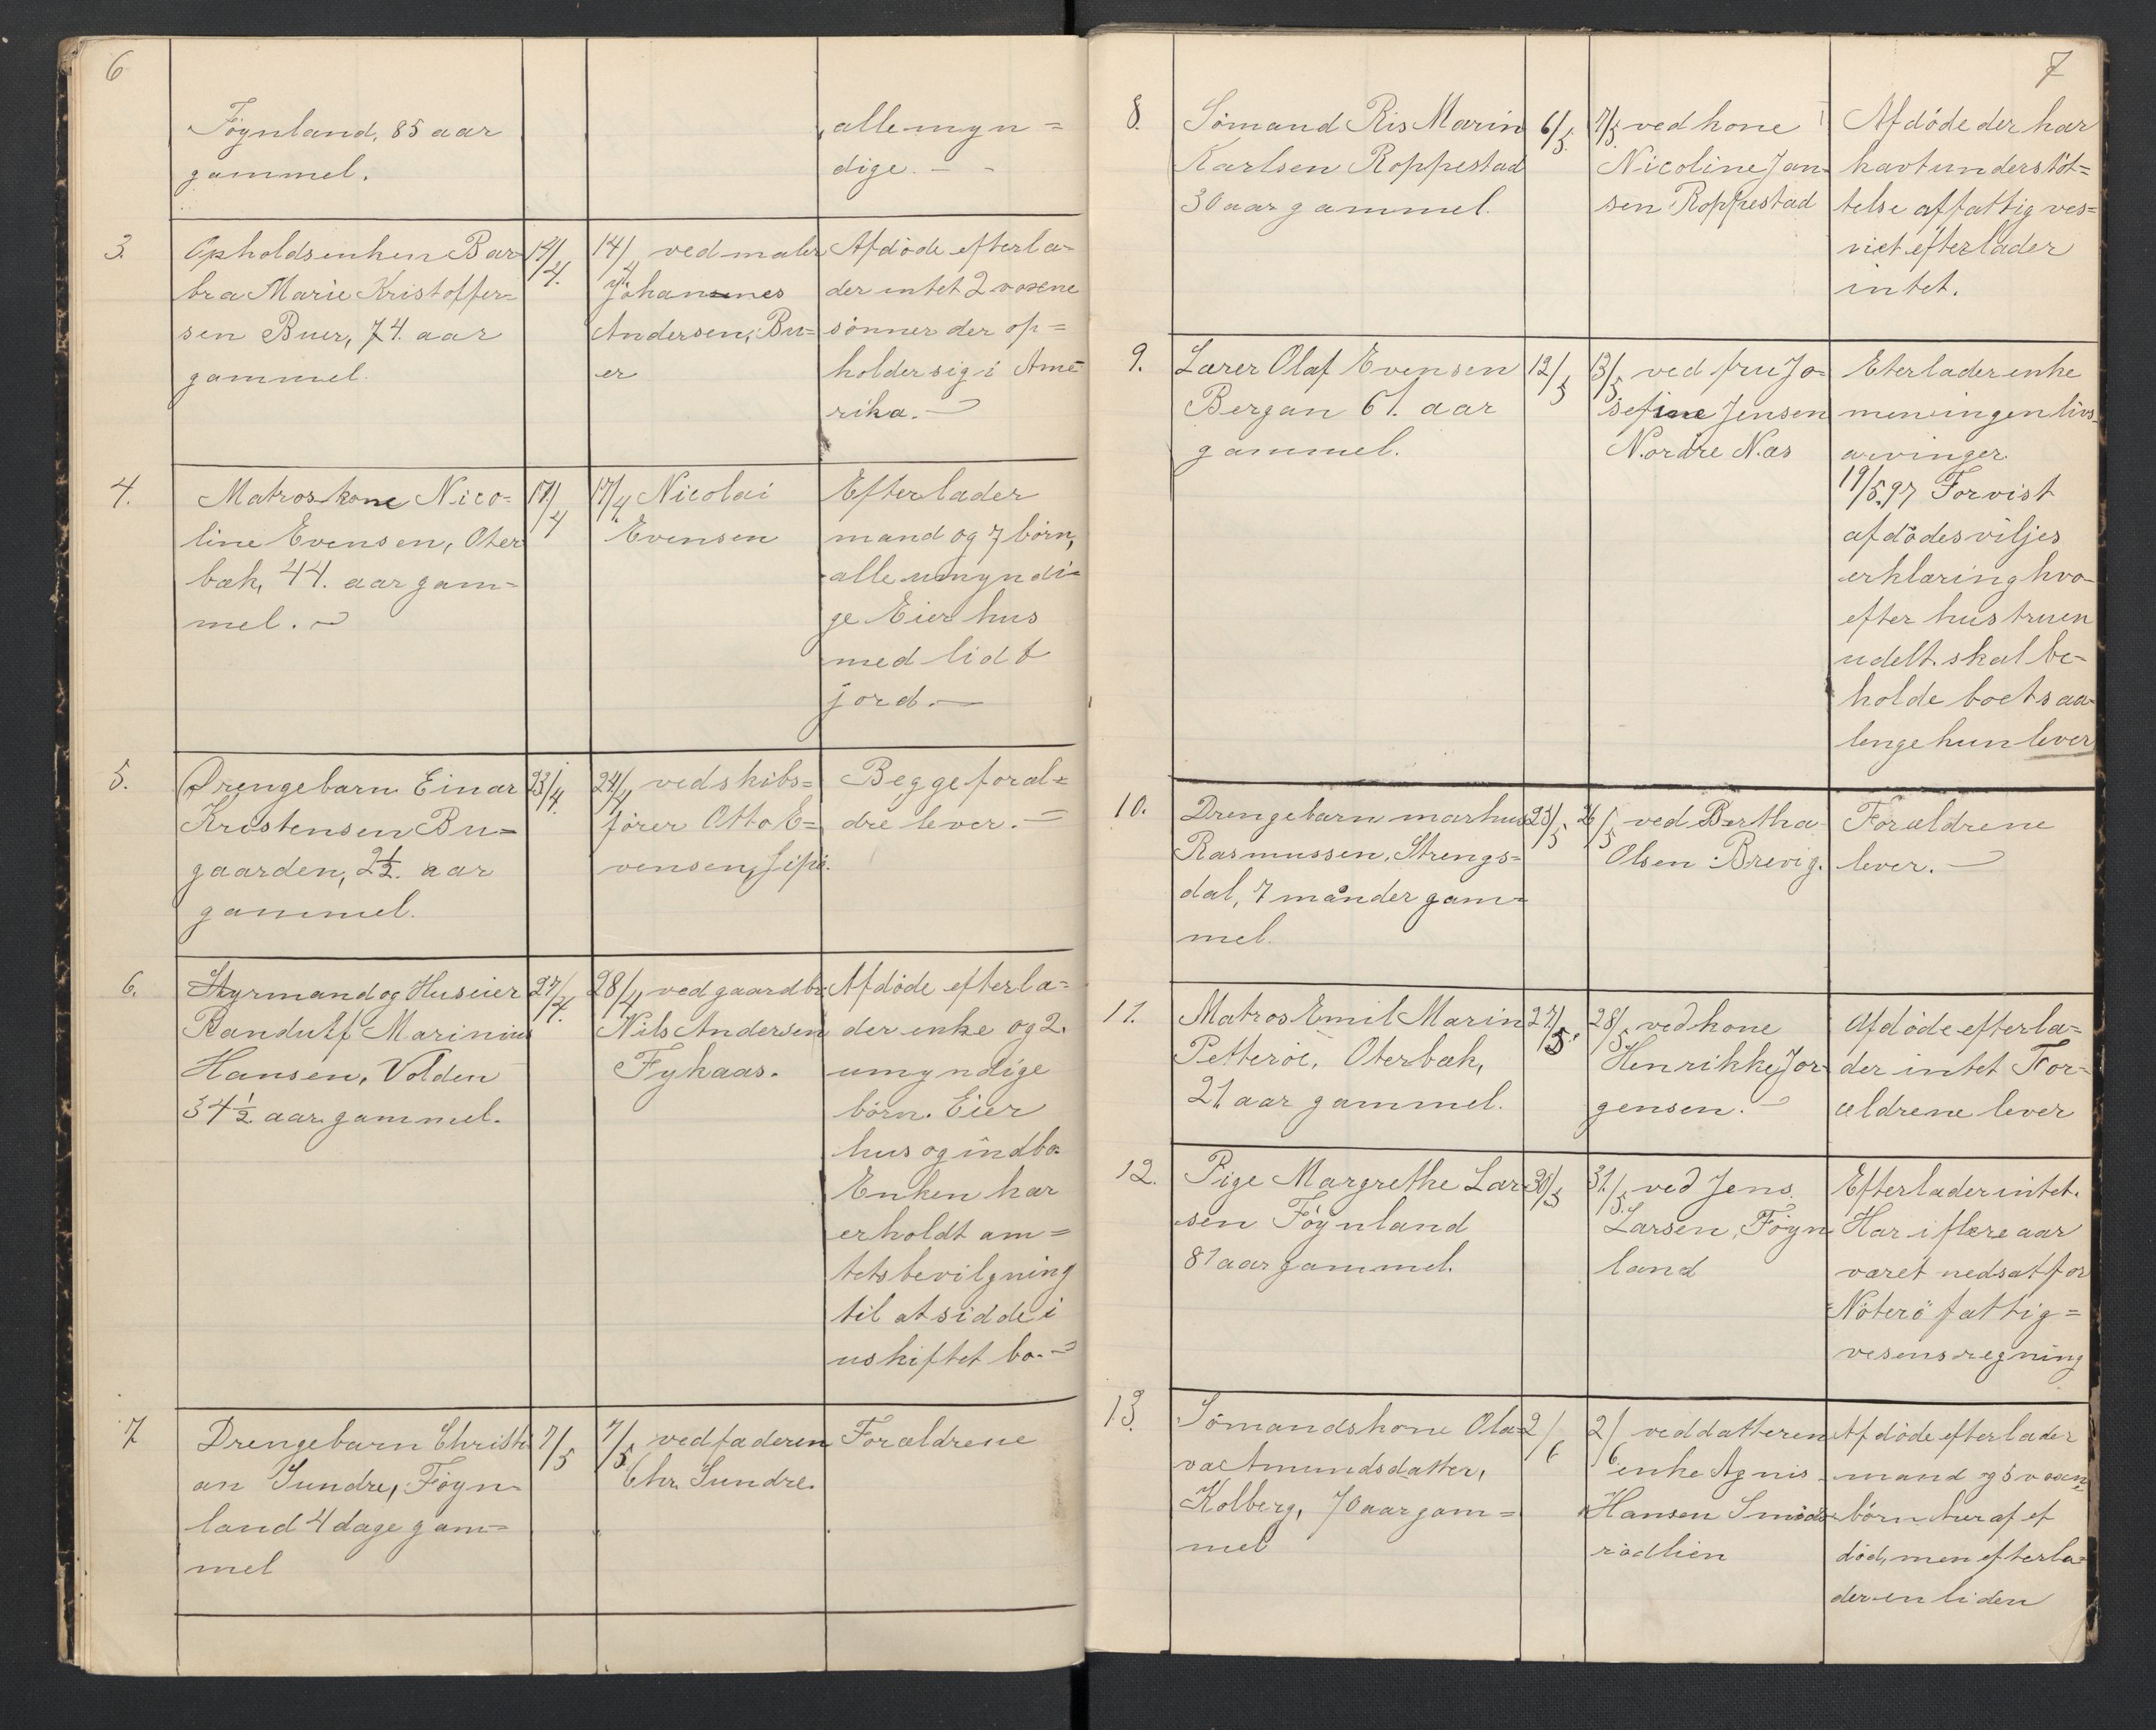 6
Föynland, 85 aar
gammel.
alle myn=
dige. -
3.
Opholdsenken Bar-
bra Marie Kristoffer=
sen Buer, 74. aar
gammel.
14/4. ved maler
Johannes
Andersen, Bu=
er
Afdöde efterla=
der intet 2 voxne
sönner der op=
holder sig i Ame=
rika.
4.
Matroskone Nico=
line Evensen, Oter
bæk, 44. aar gam=
mel.
17/4
17/4 Nicolai
Evensen
Efterlader
mand og 7 börn,
alle umyndi=
ge Eier hus
med lidt
jord.
5.
Drengebarn Einar
Kristensen Bu=
gaarden, 2½. aar
gammel.
23/4.
24/4 ved skibs=
förer Otto E=
vensen,
Begge foræl=
dre lever.
6.
Styrmand og Huseier
Randulf Marinius
Hansen, Volden
34½ aar gammel.
27/4.
28/4 ved gaardbr
Nils Andersen
Fyhaas.
Afdöde efterla=
der enke og 2.
umyndige
börn. Eier
hus og indbo.
Enken har
erholdt am=
tets bevilgning
til at sidde i
uskiftet bo.
7
Drengebarn Christi
an Sundre, Föyn=
land 4 dage gam=
mel
7/5
7/5 ved faderen
Chr. Sundre.
Forældrene
7
8.
Sömand Ris Marin
Karlsen Roppestad
30 aar gammel.
6/5.
7/5. ved kone
Nicoline Jan=
sen Roppestad
Afdöde der har
havt understöt=
telse af fattigves=
net efterlader
intet.
9.
Lærer Olaf Evensen
Bergan 61. aar
gammel.
12/5
13/5 ved fru Jo=
sefine Jensen
Nordre Næs
Eterlader enke
men ingen livs
arvinger.
19/5.97 Forvist
afdödes viljes
erklæring hvo-
efter hustruen
udelt skal be=
holde boet saa
lenge hun lever
10.
Drengebarn marhus
Rasmussen, Strengs=
dal, 7 månder gam=
mel.
25/5
26/5 ved Bertha
Olsen Brevig.
Forældrene
lever.
11.
Matros Emil Marin
Petteröe, Oterbæk,
21 aar gammel.
27/5.
28/5 ved kone
Henrikke Jör=
gensen.
Afdöde efterla=
der intet For=
ældrene lever
12.
Pige Margrethe Lar
sen Föynland
81 aar gammel.
30/5
31/5. ved Jens
Larsen, Föyn
land
Efterlader intet.
Har i flere aar
været nedsat for
Nöterö fattig=
vesens regning
13.
Sömandskone Ola=
va Amundsdatter,
Kolberg, 70 aar gam=
mel
2/6
2/6 ved datteren
enke Agnis
Hansen Smids
rödlien
Afdöde efterlader
mand og 5 voxne
börn
död, men efterla=
der en liden